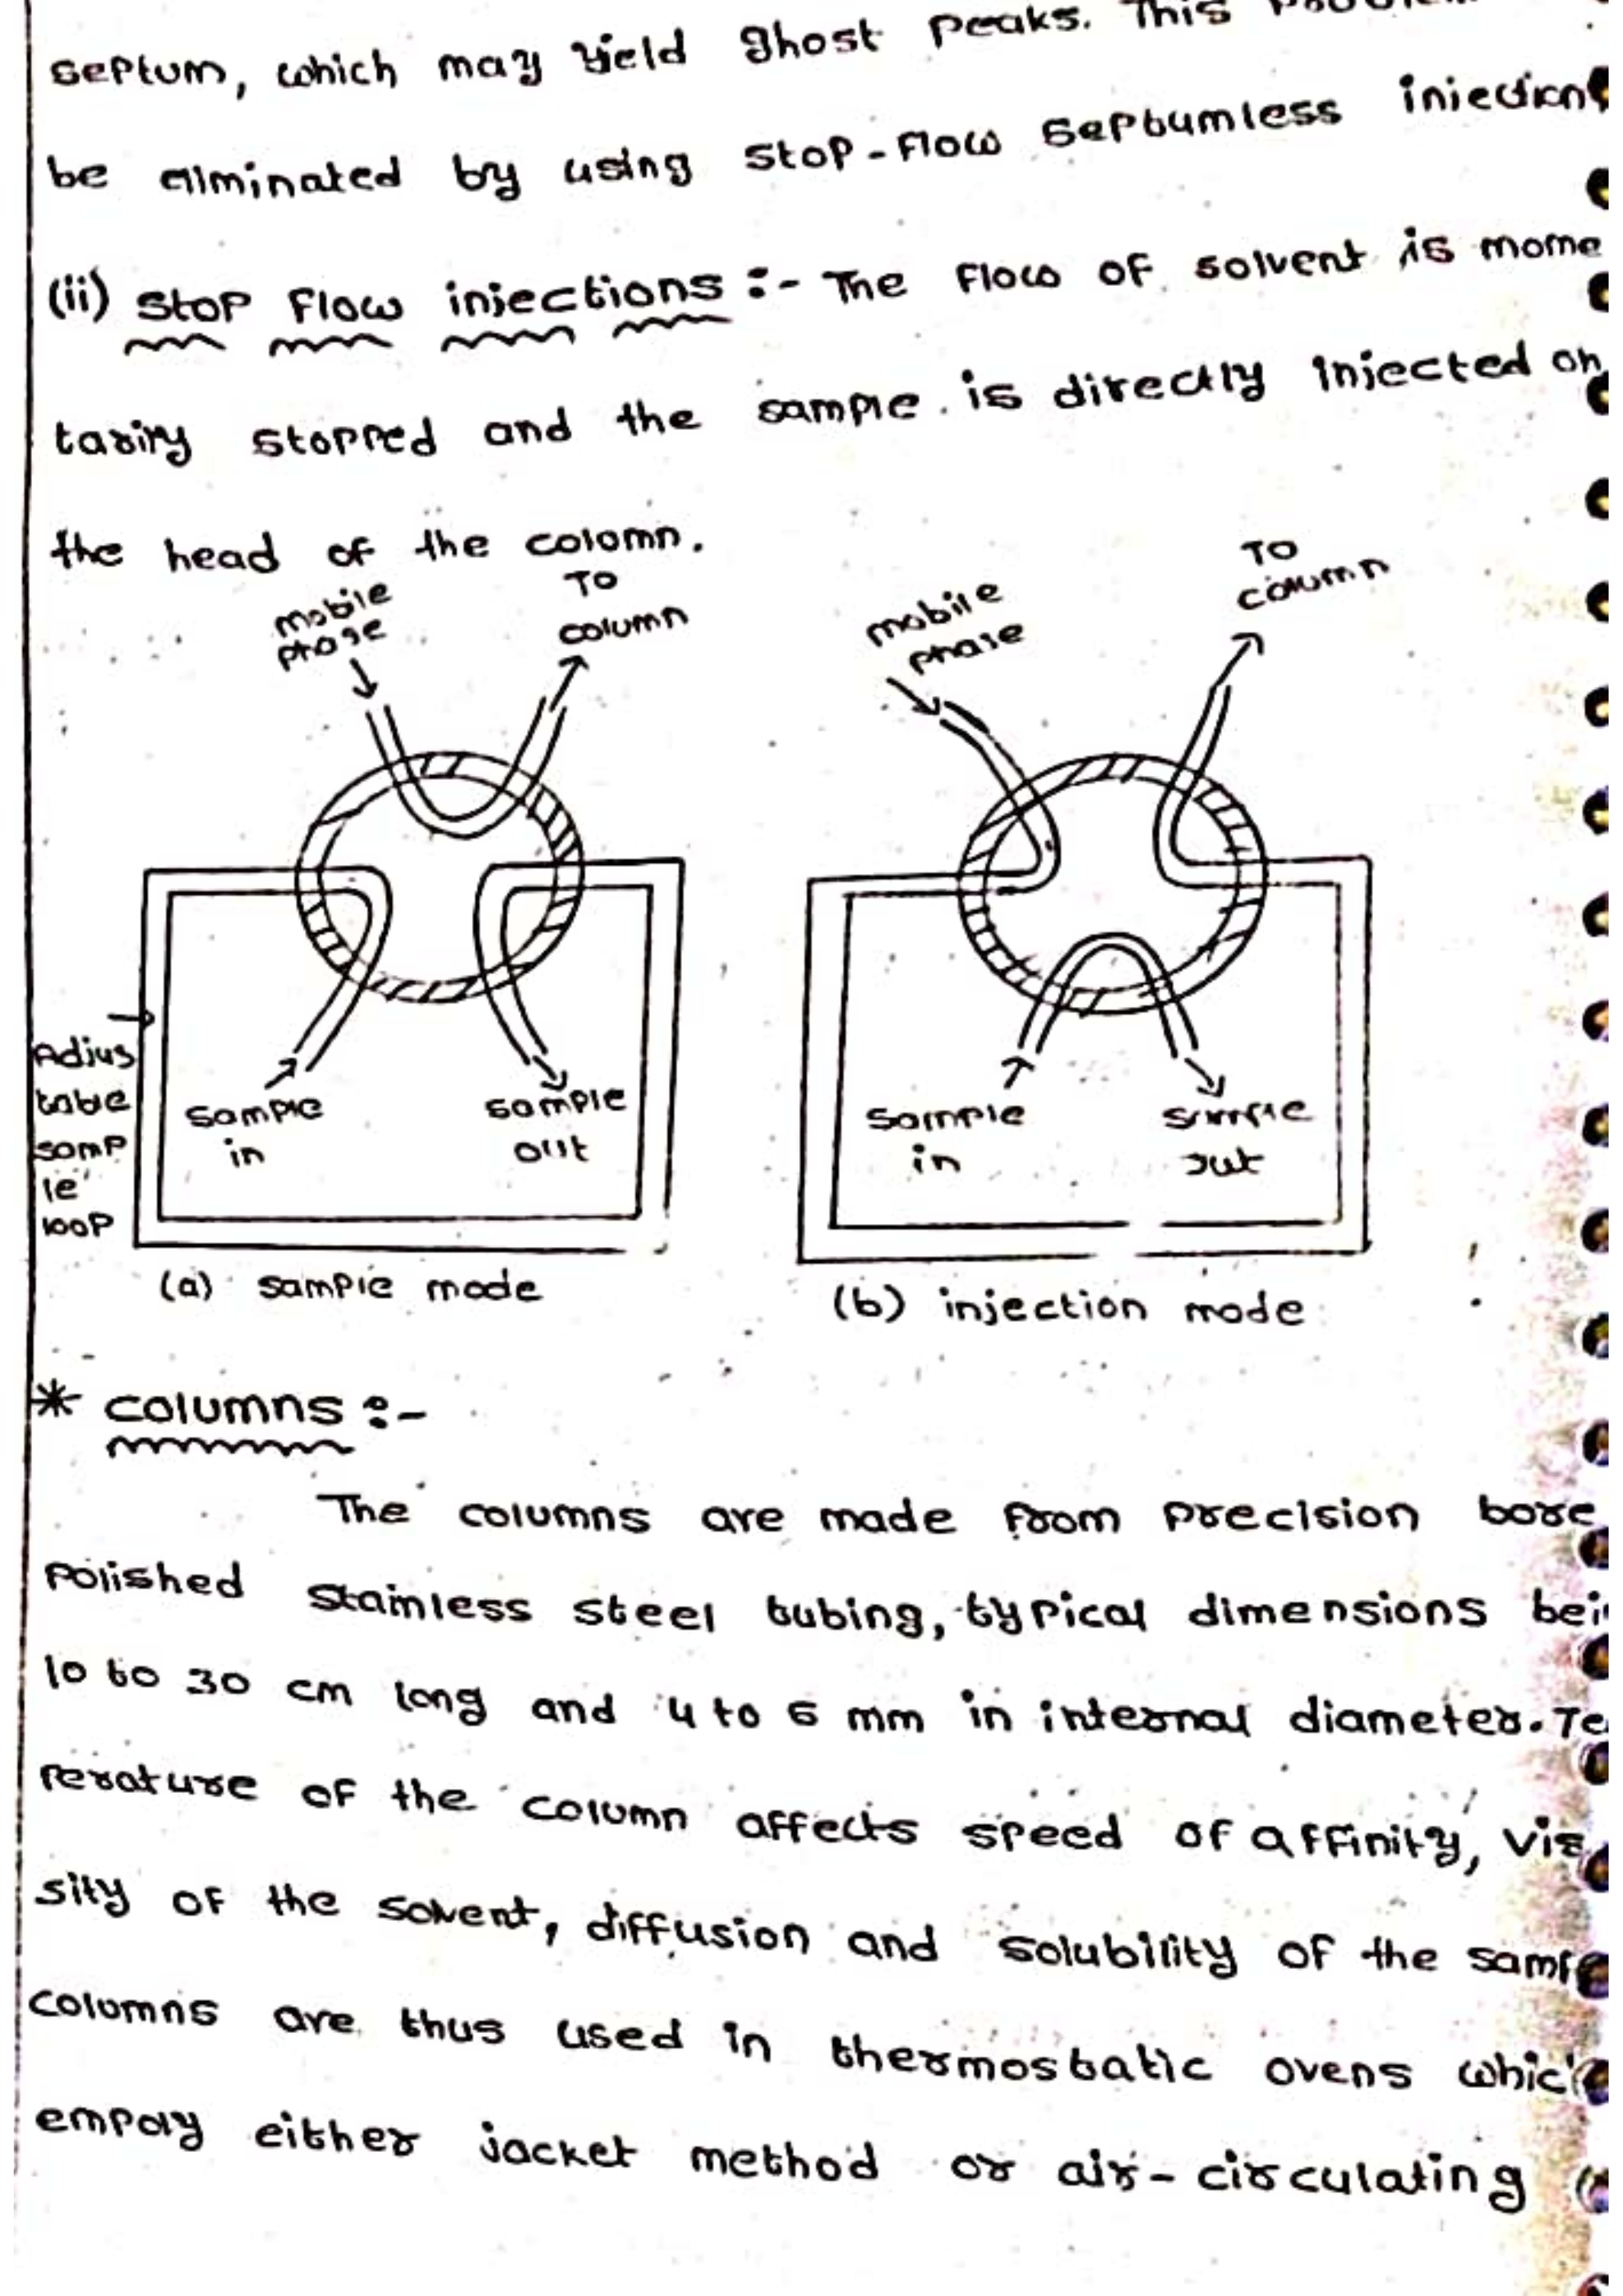 septum, which may yield ghost peaks. This
be eliminated by using stop-flow septumless injection
(ii) stop flow injections :- The flow of solvent is mome
tarily stopped and the sample is directly injected on
the head of the colomn.
mobile phase
To column
mobile phase
To column
Adjus
table
samp
le
loop
sample in
sample out
sample in
sample out
(a) sample mode
(b) injection mode
* columns :-
The columns are made from precision bore
polished stainless steel tubing, typical dimensions bei
10 to 30 cm long and 4 to 6 mm in internal diameter. Te
perature of the column affects speed of affinity, vis
sity of the solvent, diffusion and solubility of the samp
columns are thus used in thermostatic ovens whic
empoly either jacket method or air-circulating